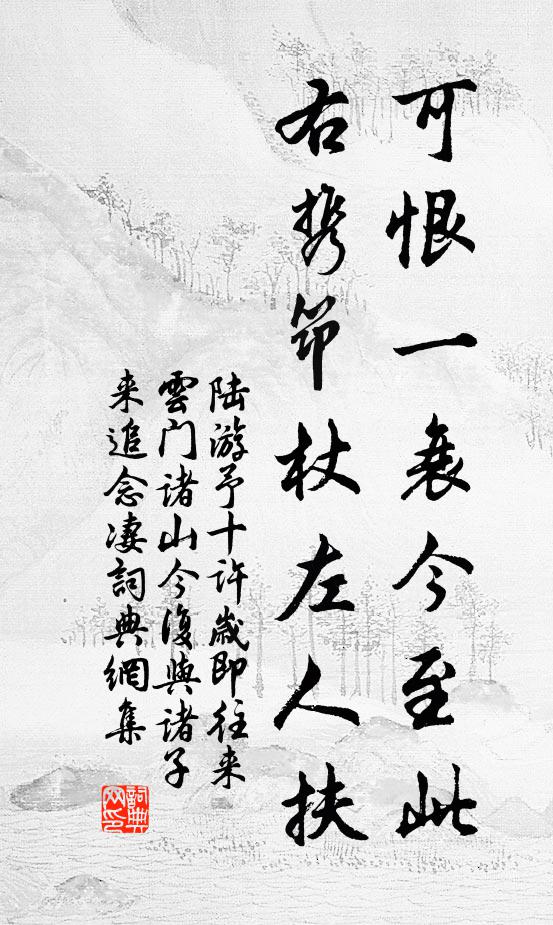 可恨一衰今至此
右携笻杖左人扶
陆游予十许歲即往来
雲门诸山今復與诸子
来追念凄詞典網集
詞典网印